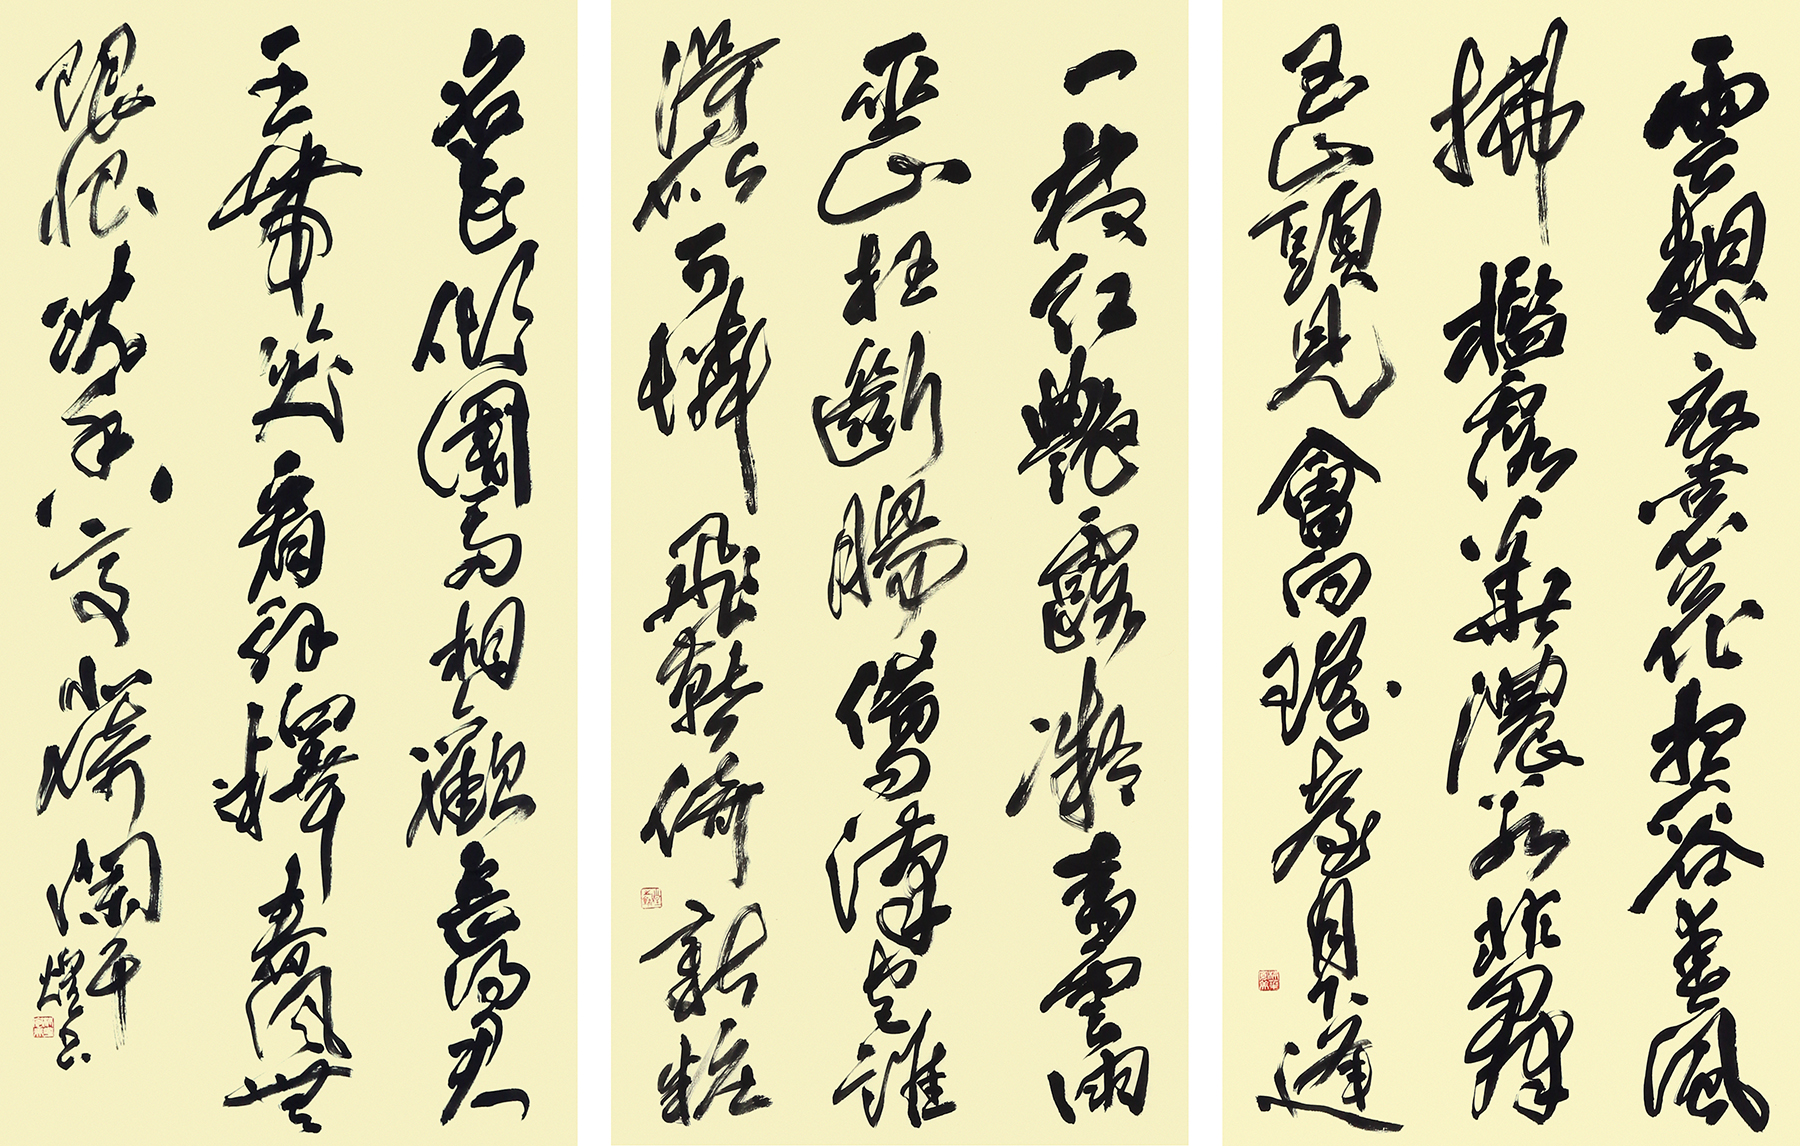 雲想衣裳花想容春風
拂檻露華濃若非群
玉山頭見會向瑤臺月下逢
一枝紅艷露凝香雲雨
巫山枉斷腸借問漢宮誰
得似可憐飛燕倚新粧
名花傾國兩相歡長得君
王帶笑看解釋春風無
限恨沈香亭北倚闌干